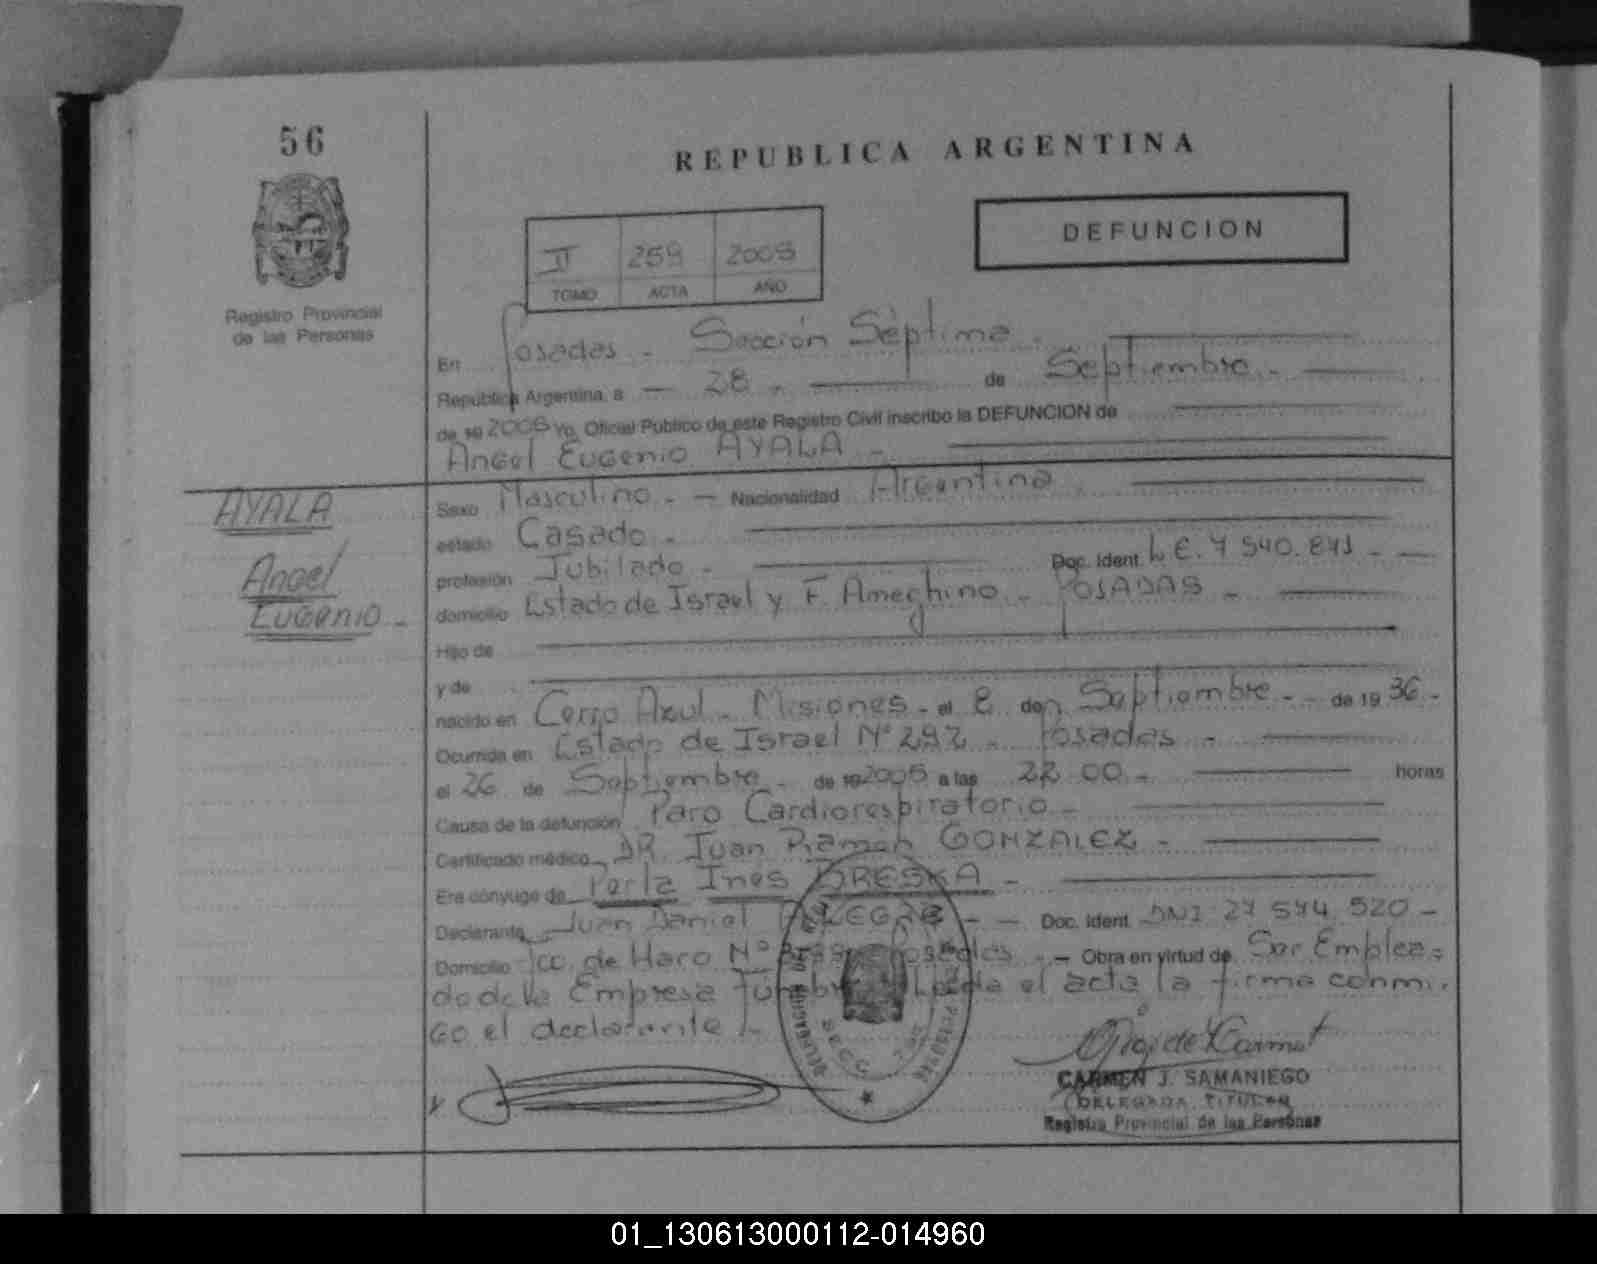 56
REPUBLICA ARGENTINA
DEFUNCION
II 259 2005
TOMO ACTA AÑO
Registro Provincial
de las Personas
En Posadas - Sección Séptima -
República Argentina, a - 28 - de Septiembre -
de 19 2005 Yo, Oficial Público de este Registro Civil inscribo la DEFUNCION de
Angel Eugenio AYALA -
AYALA
Angel
Eugenio -
Sexo Masculino - - Nacionalidad Argentina
estado Casado -
profesión Jubilado - Doc. Ident. L.E. 7 540. 841 -
domicilio Estado de Israel y F. Ameghino - POSADAS -
Hijo de
y de
nacido en Cerro Azul - Misiones - el 8 de Septiembre - - de 19 36 -
Ocurrida en Estado de Israel Nº 292 - Posadas -
el 26 de Septiembre - de 19 2005 a las 22 00 - horas
Causa de la defunción Paro Cardiorespiratorio -
Certificado médico DR Juan Ramón GONZALEZ -
Era cónyuge de Perla Ines BRESKA -
Declarante Juan Daniel - - Doc. Ident. DNI 27 574 520 -
Domicilio Fco. de Haro Nº Posadas - - Obra en virtud de Ser Emplea=
do de la Empresa Fúnebre Leída el acta la firma conmi.
go el declarante -
CARMEN J. SAMANIEGO
DELEGADA TITULAR
Registro Provincial de las Personas
01_130613000112-014960